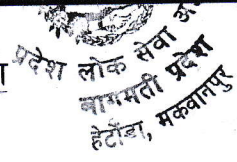 प्रदेश लोक सेवा
बागमती प्रदेश
हेटौंडा, मकवानपुर